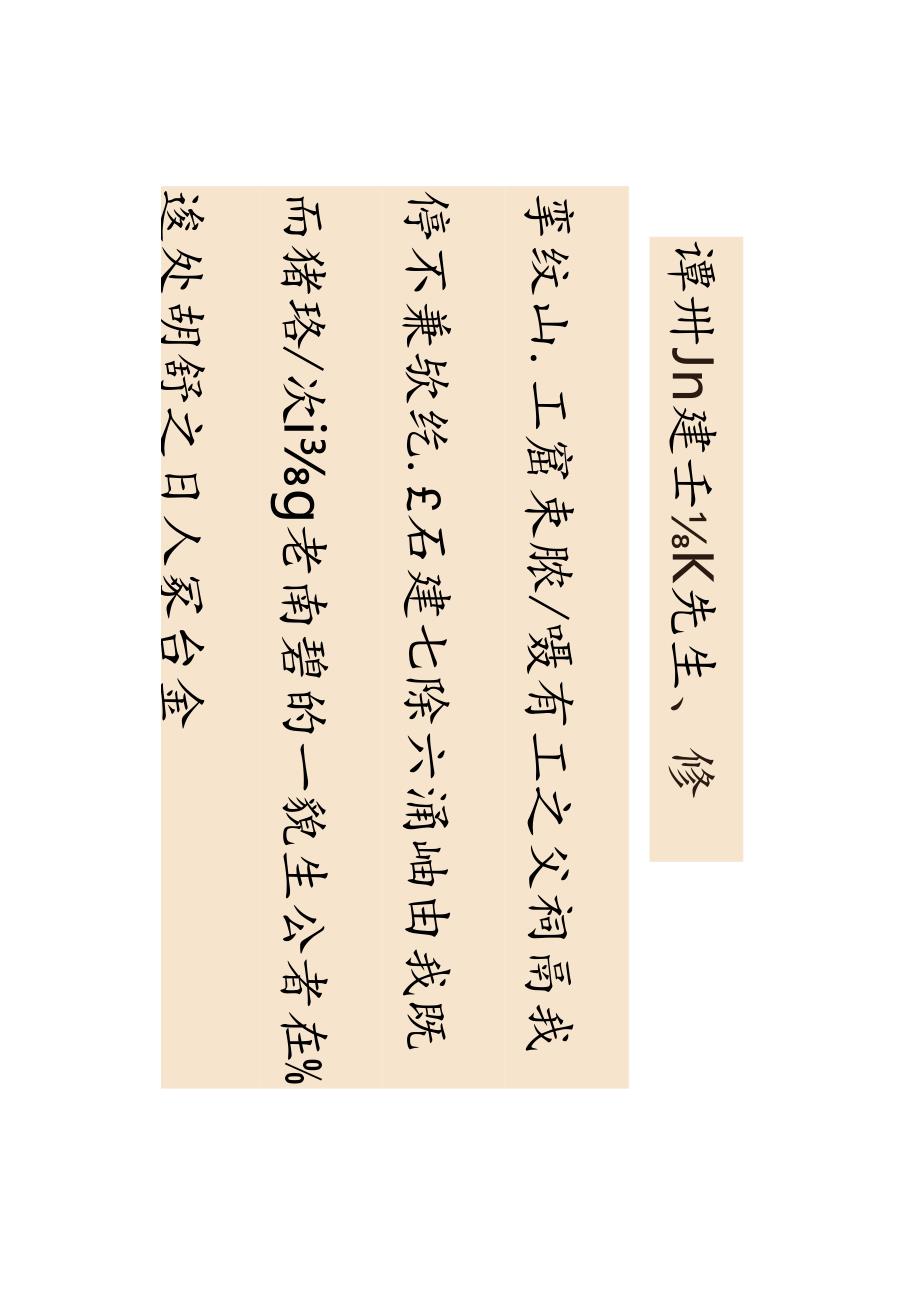 谭卅Jn建壬⅛K先生、修
挛纹山.工窟束脓/嗫有工之父祠鬲我
停不兼欤纥.£石建七除六涌岫由我既
而猪珞/次i⅜g老南碧的一貌生公者在%
逡处胡舒之日人冢台金